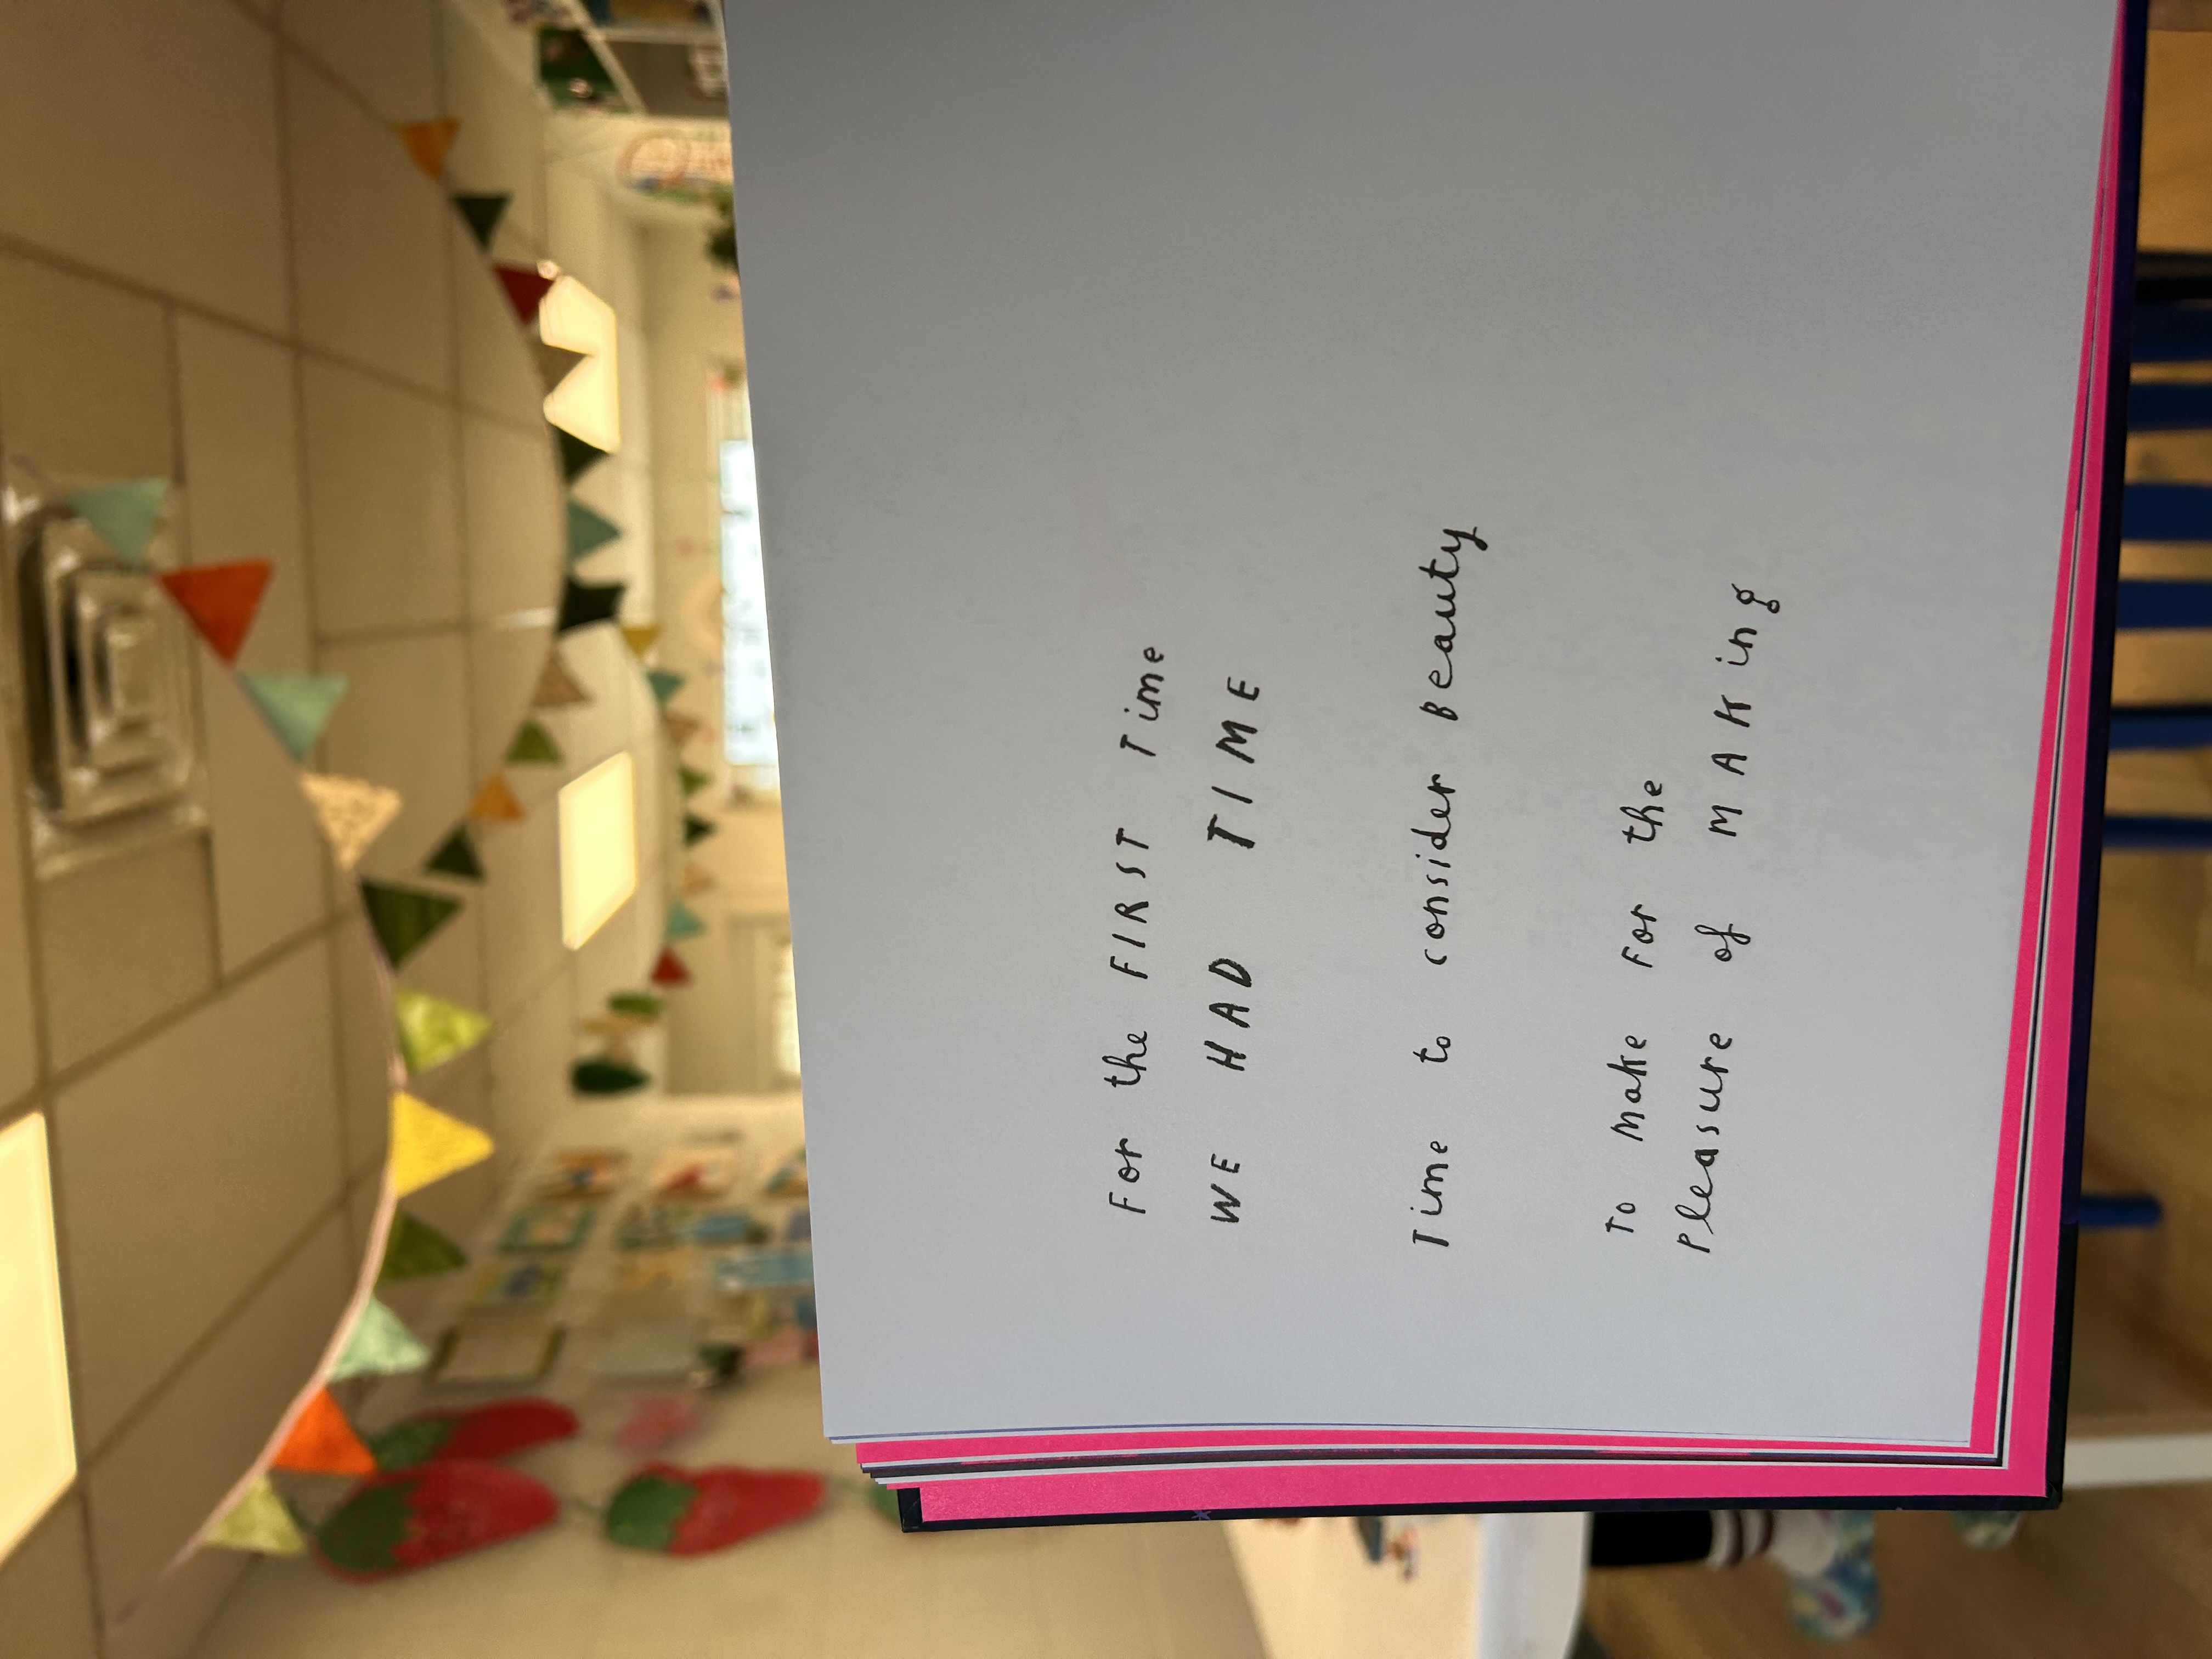 For the FIRST Time
WE HAD TIME
Time to consider Beauty
To make For the
Pleasure of MAKing